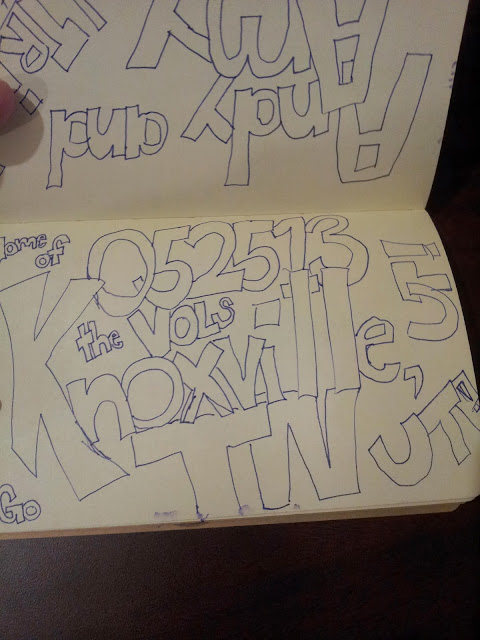 Andy and
Amy
Home of
052513
the VOLS
Knoxville,
TN
UT
Go